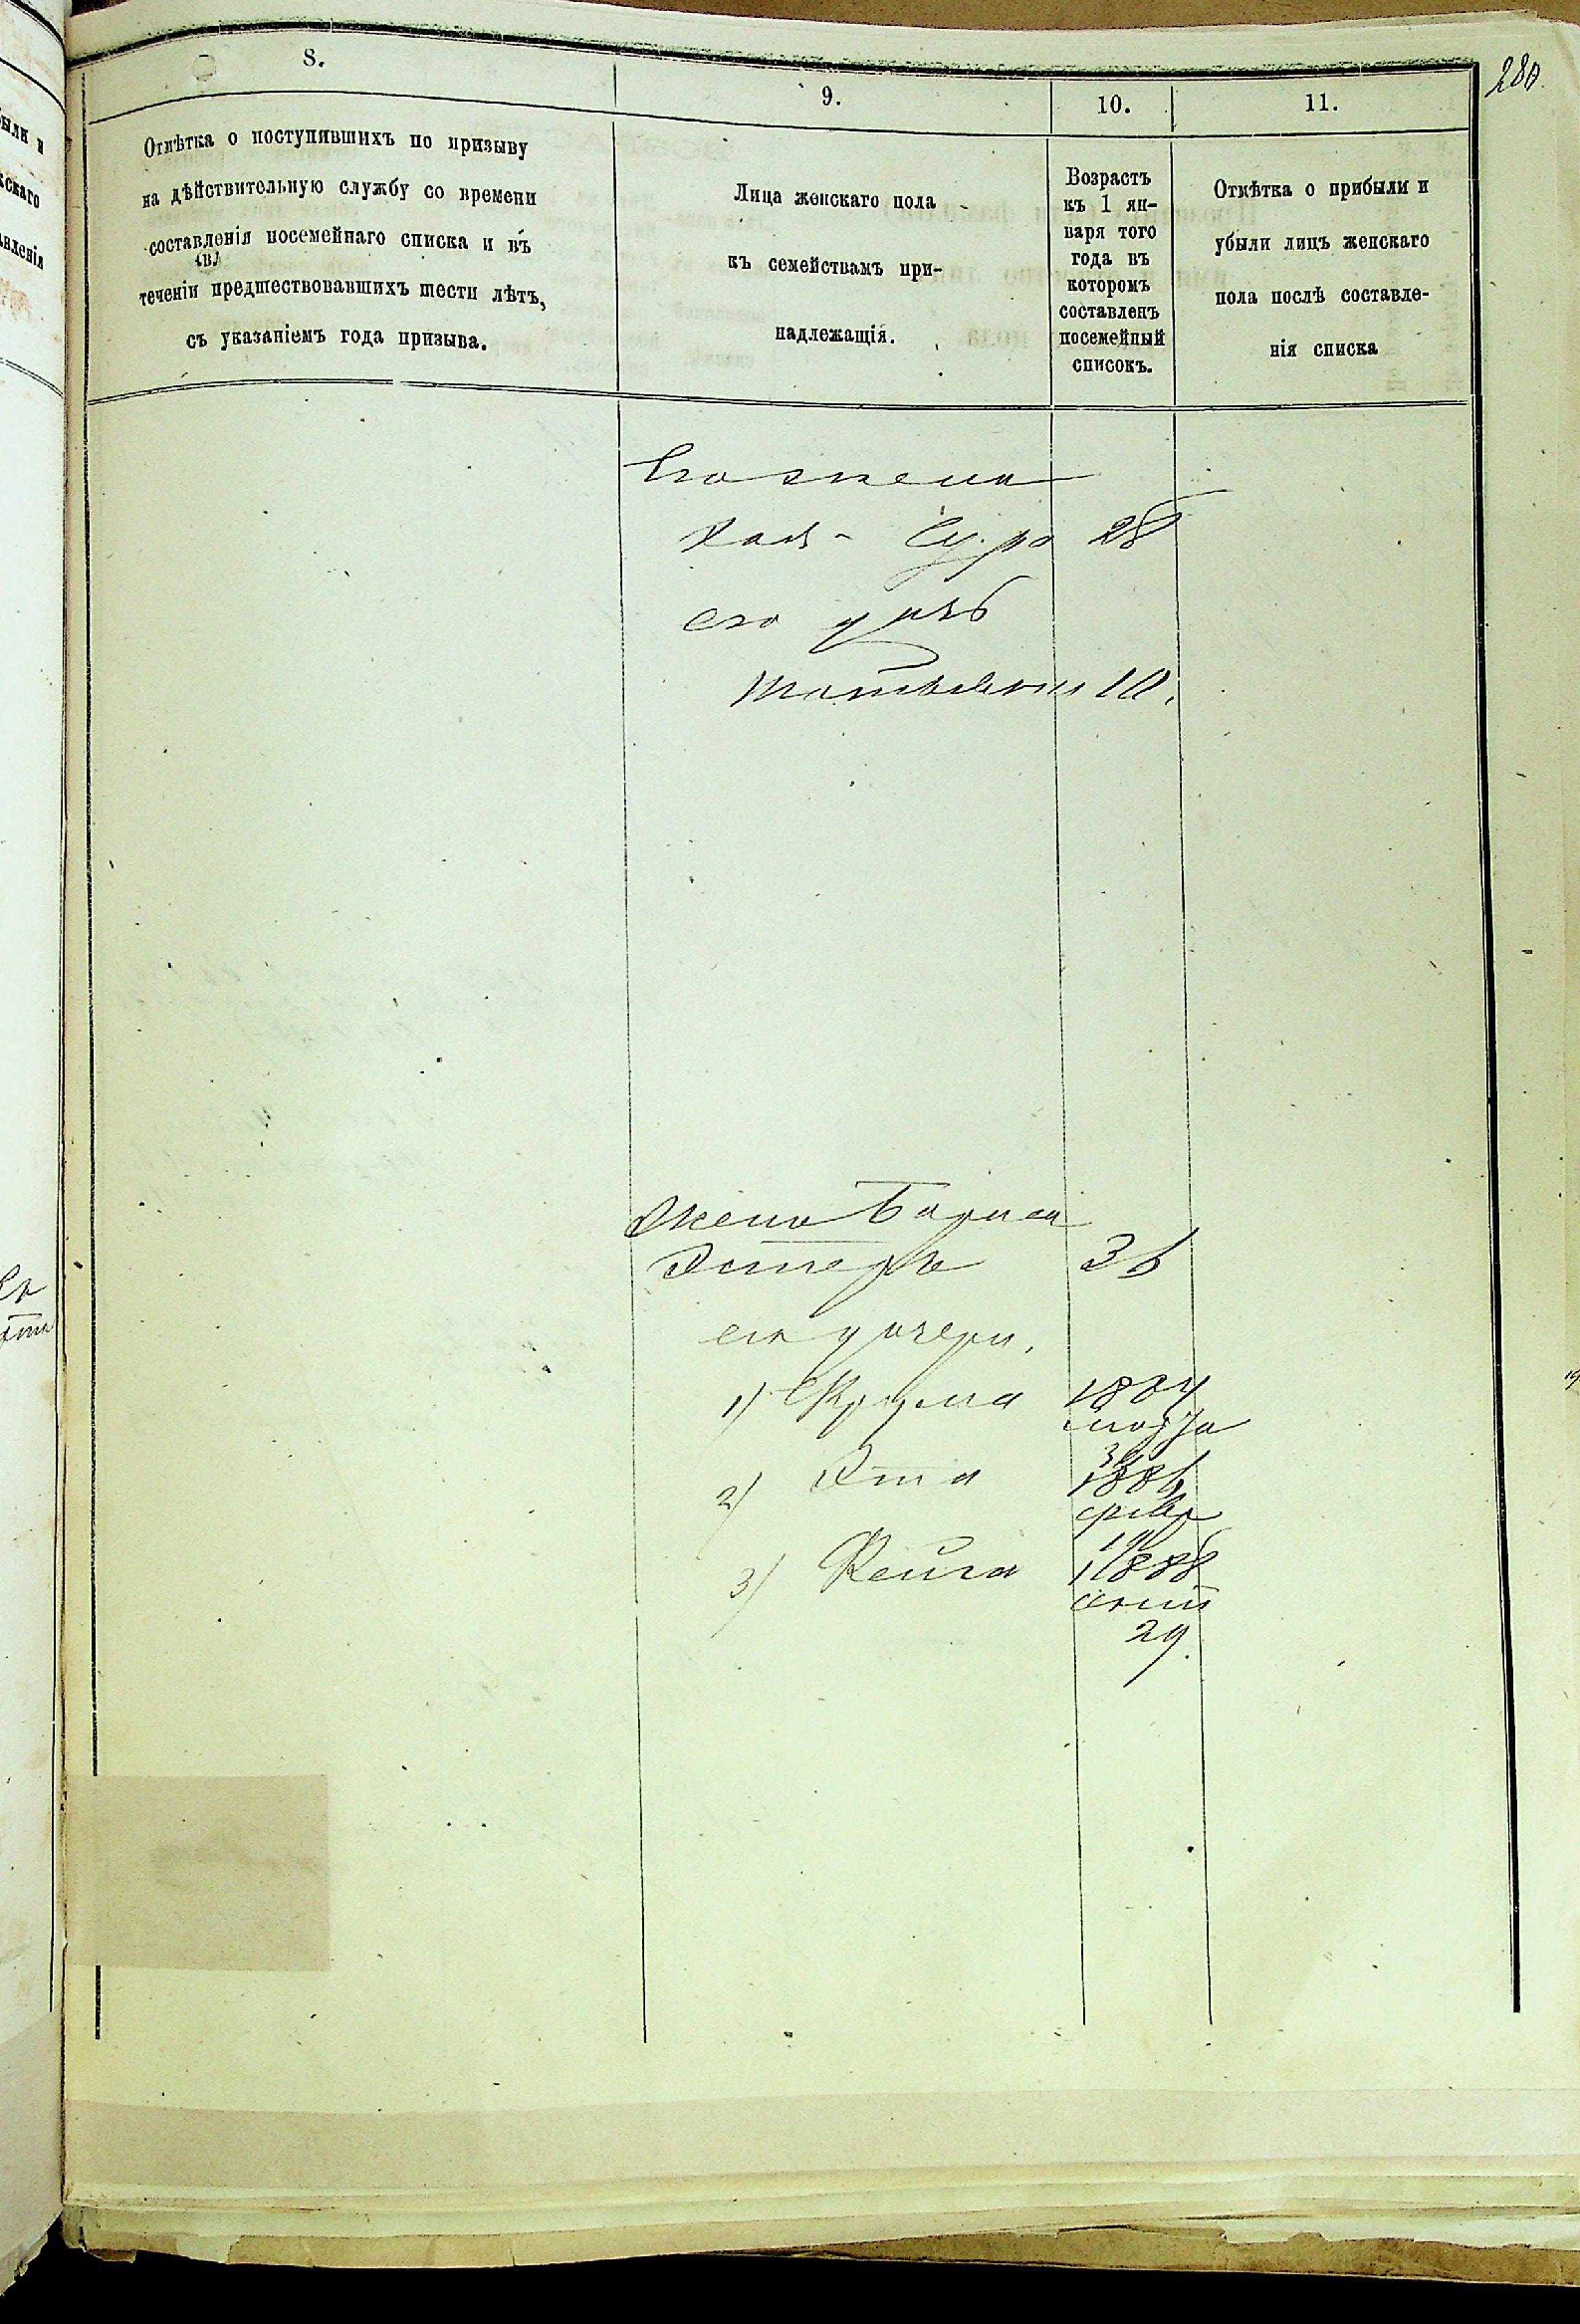 280.
8.
Отмѣтка о поступившихъ по призыву
на дѣйствительную службу со времени
составленія посемейнаго списка и въ
теченіи предшествовавшихъ шести лѣтъ,
съ указаніемъ года призыва.
9.
Лица женскаго пола
къ семействамъ при-
надлежащія.
10.
Возрастъ
къ 1 ян-
варя того
года въ
которомъ
составленъ
посемейный
списокъ.
11.
Отмѣтка о прибыли и
убыли лицъ женскаго
пола послѣ составле-
нія списка
Его жена
Хая - Сура 28
его дочь
10.
Жена Бориса
Эстеръ 36
его дочери.
1) Фрума 1884
2) Эта 1886
февр
19
3) Рейза 1888
іюній
29.